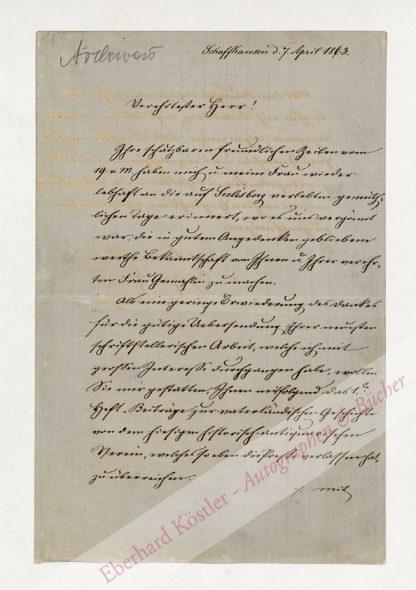 Archivar
Schaffhausen d. 7. April 1863.
Verehrtester Herr!
Ihre schätzbaren freundlichen Zeilen vom
19. v. M. haben mich u. meine Frau wieder
lebhaft an die auf Seelisberg verlebten gemüth-
lichen Tage erinnert, wo es uns vergönnt
war, die in gutem Angedenken gebliebene
werthe Bekanntschaft von Ihnen u. Ihrer verehr-
ten Frau Gemahlin zu machen.
Als eine geringe Erwiederung des Dankes
für die gütige Uebersendung Ihrer neusten
schriftstellerischen Arbeit, welche ich mit
großem Interesse durchgangen habe, wollen
Sie mir gestatten, Ihnen mitfolgend das 1.te
Heft Beiträge zur vaterländischen Geschichte
von dem hiesigen historisch antiquarischen
Verein, welches soeben die Presse verlassen hat,
zu überreichen.
mit
Eberhard Köstler - Autographen & Bücher